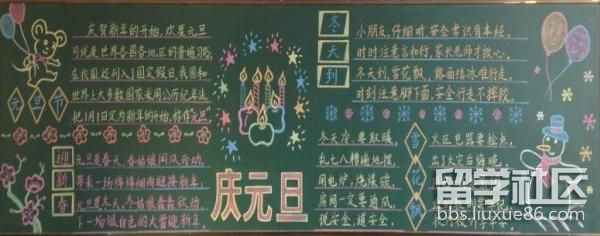 元旦节
庆贺新年的开始,欢度元旦
可说是世界各国各地区的普遍习俗,
在我国还列入了国定假日,我国和
世界上大多数国家采用公历纪年法,
把1月1日定为新年的开始,称作元旦
迎新春
元旦是春天,春姑娘闻风而动,
带来一场绵绵细雨迎接新年
元旦是冬天,冬姑娘蠢蠢欲动,
下一场银白色的大雪迎新年。
庆元旦
冬天到
小朋友,仔细听,安全常识自本经,
时时注意言和行,家长老师才放心,
冬天到,雪花飘,路面结冰难行走,
时刻注意脚下面,安全行走不摔跤,
雪花飘
冬天冷,要取暖,
乱七八糟遍地摆,
用电炉,烧煤碳,
房间一定要通风,
说安全,道安全,
火区电器要检点,
出了火灾后悔晚,
留学社区
bbs.liuxue86.com